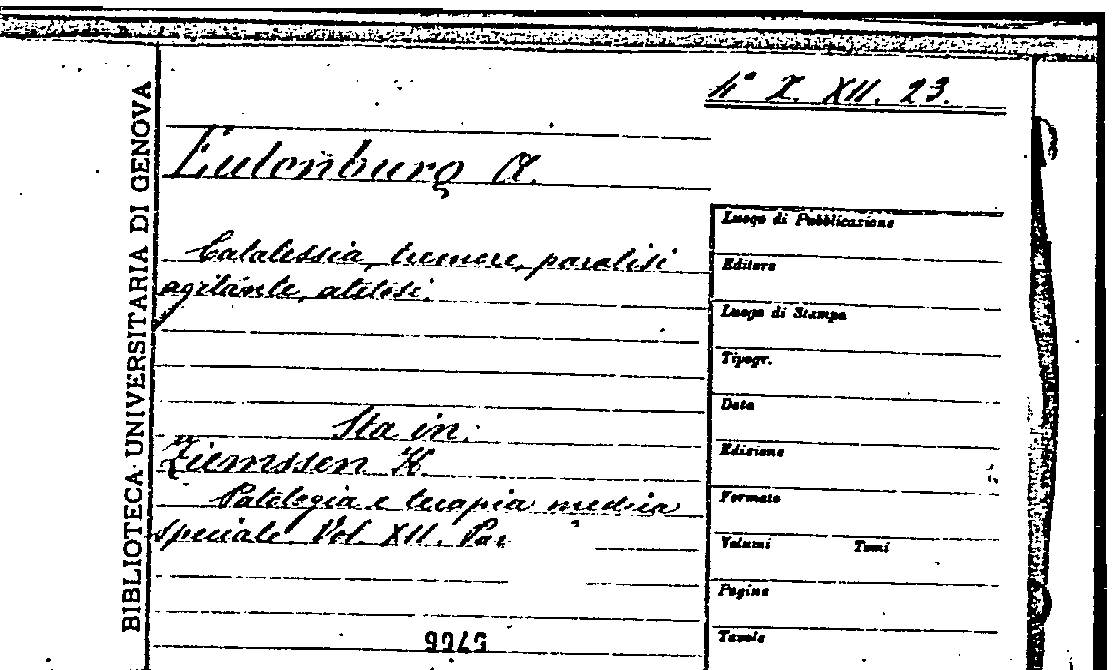 BIBLIOTECA UNIVERSITARIA DI GENOVA
4° Z. XII. 23.
Eulenburg A.
Catalessia, tremore, paralisi
agitante, atetosi.
Sta in:
Ziemssen H.
Patologia e terapia medica
speciale. Vol. XII. Par
Luogo di Pubblicazione
Editore
Luogo di Stampa
Tipogr.
Data
Edizione
Formato
Volumi Tomi
Pagine
Tavole